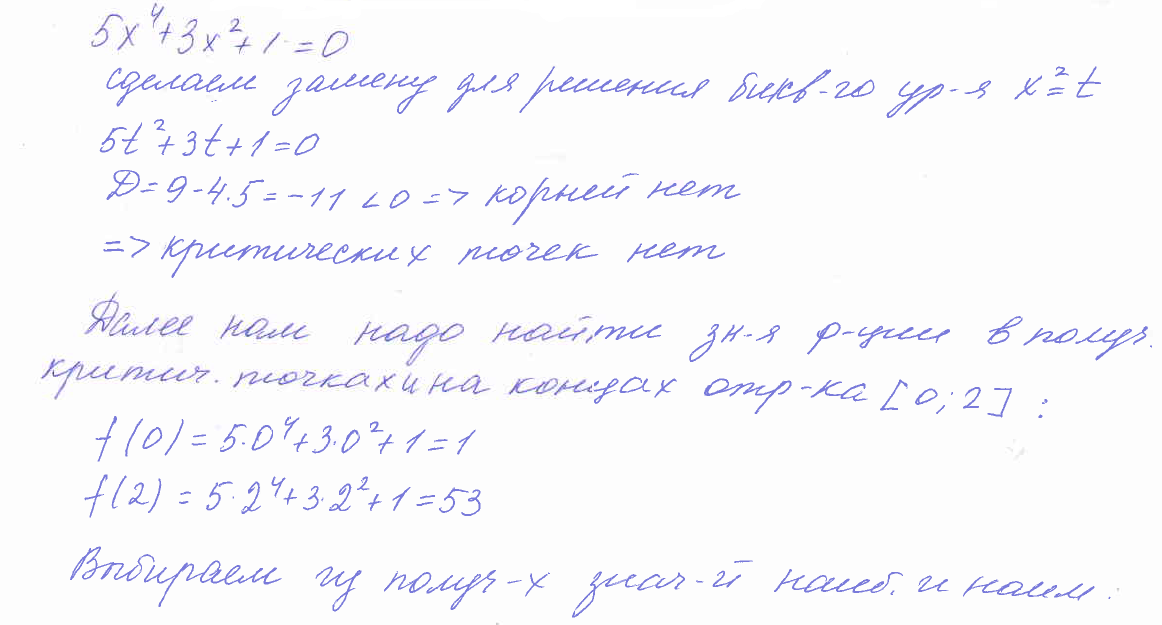 5x⁴+3x²+1=0
сделаем замену для решения бикв-го ур-я x²=t
5t²+3t+1=0
D=9-4·5=-11<0 => корней нет
=> критических точек нет
Далее нам надо найти зн-я ф-ции в получ.
критич. точках и на концах отр-ка [0;2]:
f(0)=5·0⁴+3·0²+1=1
f(2)=5·2⁴+3·2²+1=53
Выбираем из получ-х знач-й наиб. и наим.